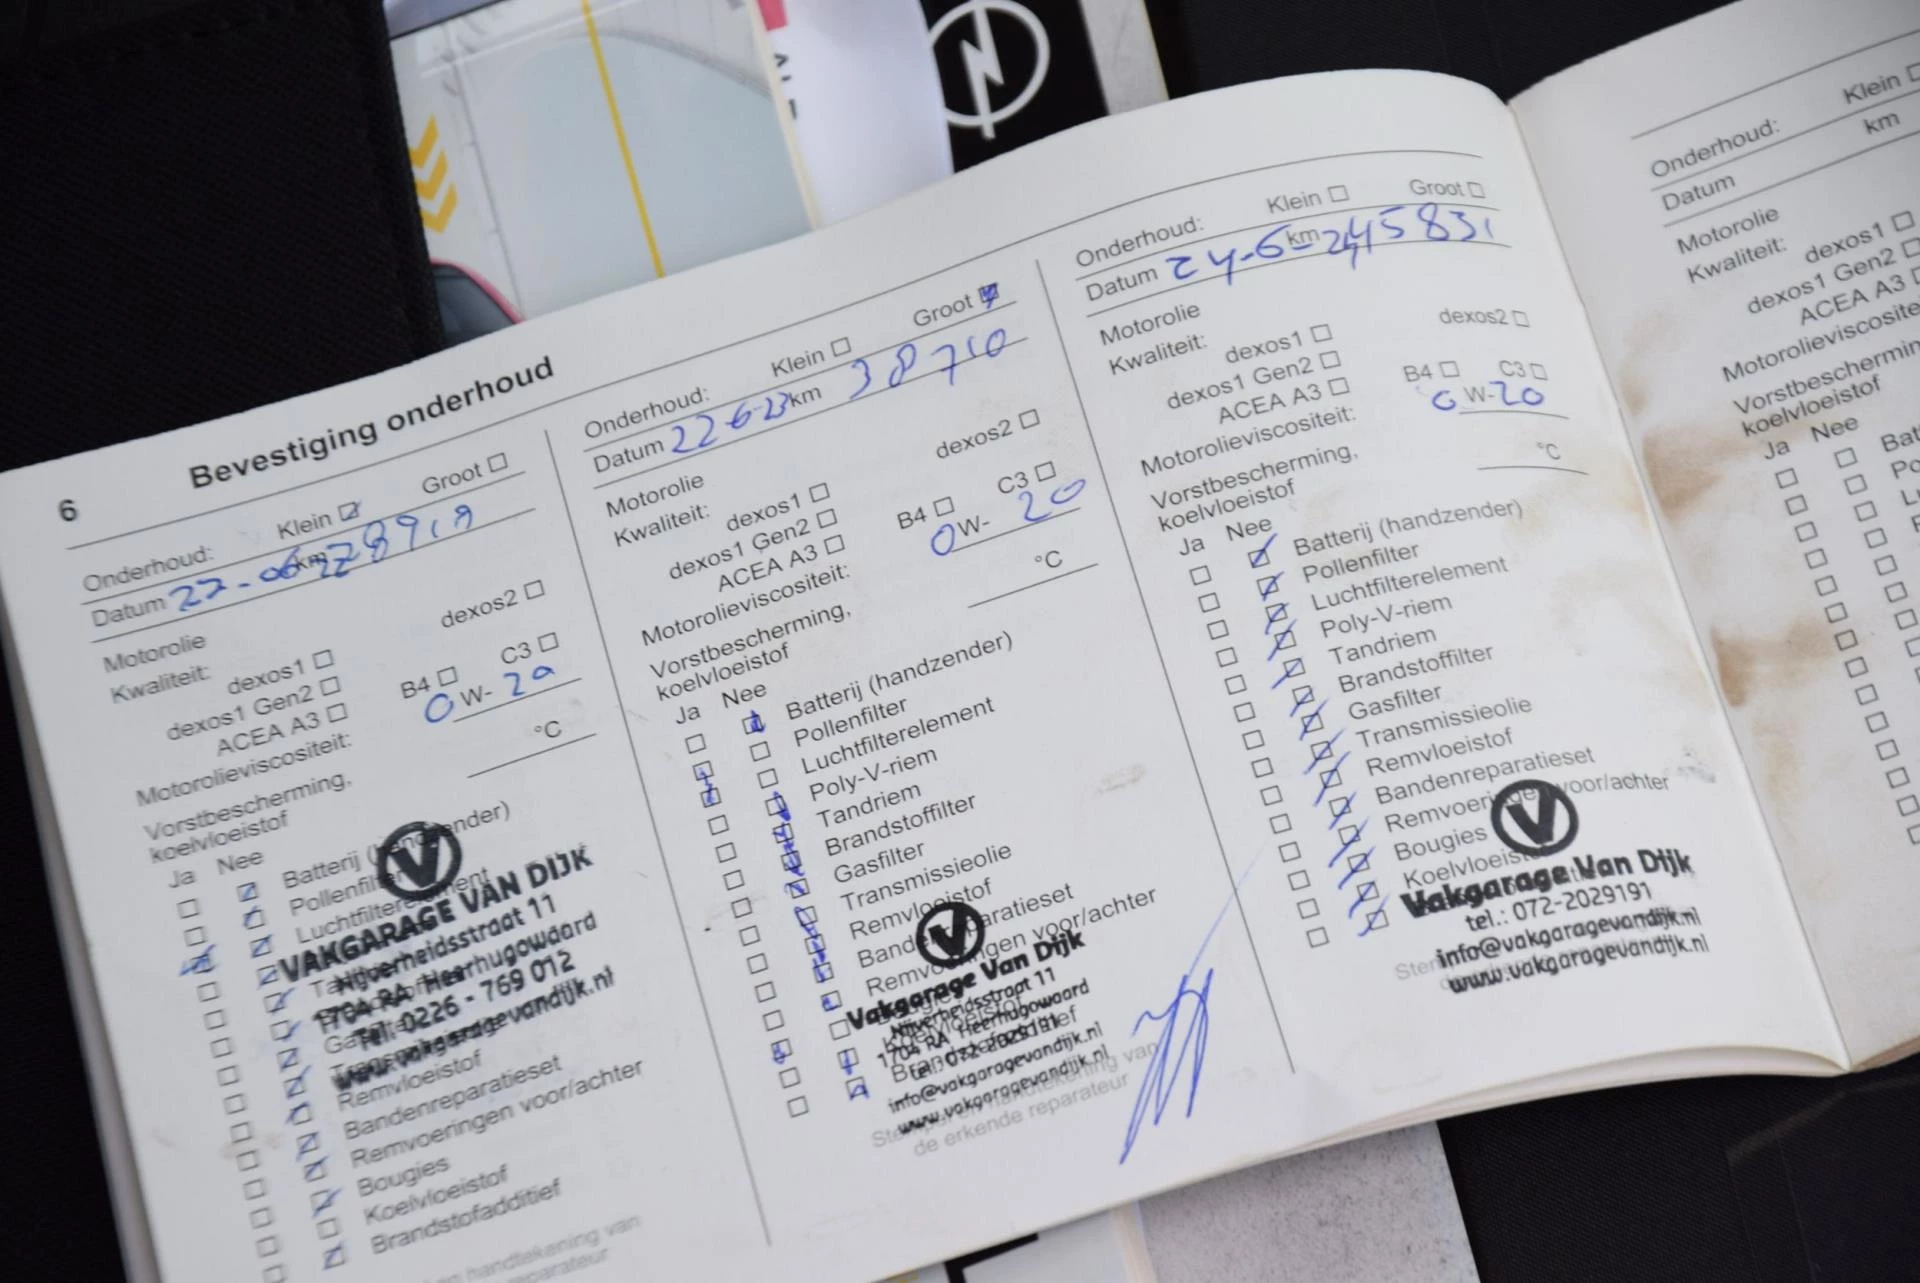 6
Bevestiging onderhoud
Onderhoud: Klein Groot
Datum 22-06-22 km 28919
Motorolie
Kwaliteit: dexos1 dexos2
dexos1 Gen2
ACEA A3 B4 C3
Motorolieviscositeit: 0 W- 20
Vorstbescherming,
koelvloeistof °C
Ja Nee
Batterij (handzender)
Pollenfilter
Luchtfilterelement
VAKGARAGE VAN DIJK
Nijverheidsstraat 11
1704 RA Heerhugowaard
Tel: 0226 - 769 012
www.vakgaragevandijk.nl
Remvloeistof
Bandenreparatieset
Remvoeringen voor/achter
Bougies
Koelvloeistof
Brandstofadditief
handtekening van
Onderhoud: Klein Groot
Datum 22-6-23 km 38710
Motorolie
Kwaliteit: dexos1 dexos2
dexos1 Gen2
ACEA A3 B4 C3
Motorolieviscositeit: 0 W- 20
Vorstbescherming,
koelvloeistof °C
Ja Nee
Batterij (handzender)
Pollenfilter
Luchtfilterelement
Poly-V-riem
Tandriem
Brandstoffilter
Gasfilter
Transmissieolie
Remvloeistof
Bandenreparatieset
Remvoeringen voor/achter
Vakgarage Van Dijk
Nijverheidsstraat 11
1704 RA Heerhugowaard
tel.: 072-2029191
info@vakgaragevandijk.nl
www.vakgaragevandijk.nl
Stempel en handtekening van
de erkende reparateur
Onderhoud: Klein Groot
Datum 24-6-24 km 45831
Motorolie
Kwaliteit: dexos1 dexos2
dexos1 Gen2
ACEA A3 B4 C3
Motorolieviscositeit: 0 W- 20
Vorstbescherming,
koelvloeistof °C
Ja Nee
Batterij (handzender)
Pollenfilter
Luchtfilterelement
Poly-V-riem
Tandriem
Brandstoffilter
Gasfilter
Transmissieolie
Remvloeistof
Bandenreparatieset
Remvoeringen voor/achter
Bougies
Koelvloeistof
Vakgarage Van Dijk
tel.: 072-2029191
info@vakgaragevandijk.nl
www.vakgaragevandijk.nl
Onderhoud: Klein
Datum km
Motorolie
Kwaliteit: dexos1
dexos1 Gen2
ACEA A3
Ja Nee